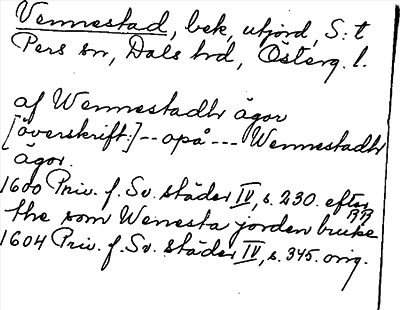 Vennestad, bek, utjord, S:t
Pers sn, Dals hd, Österg. l.
af Wennestadhr ägor
[överskrift:] -- opå --- Wennestadhr
ägor.
1600 Priv. f. Sv. städer IV, s. 230. efter
the som Wenesta jorden bruke
1604 Priv. f. Sv. städer IV, s. 345. orig.